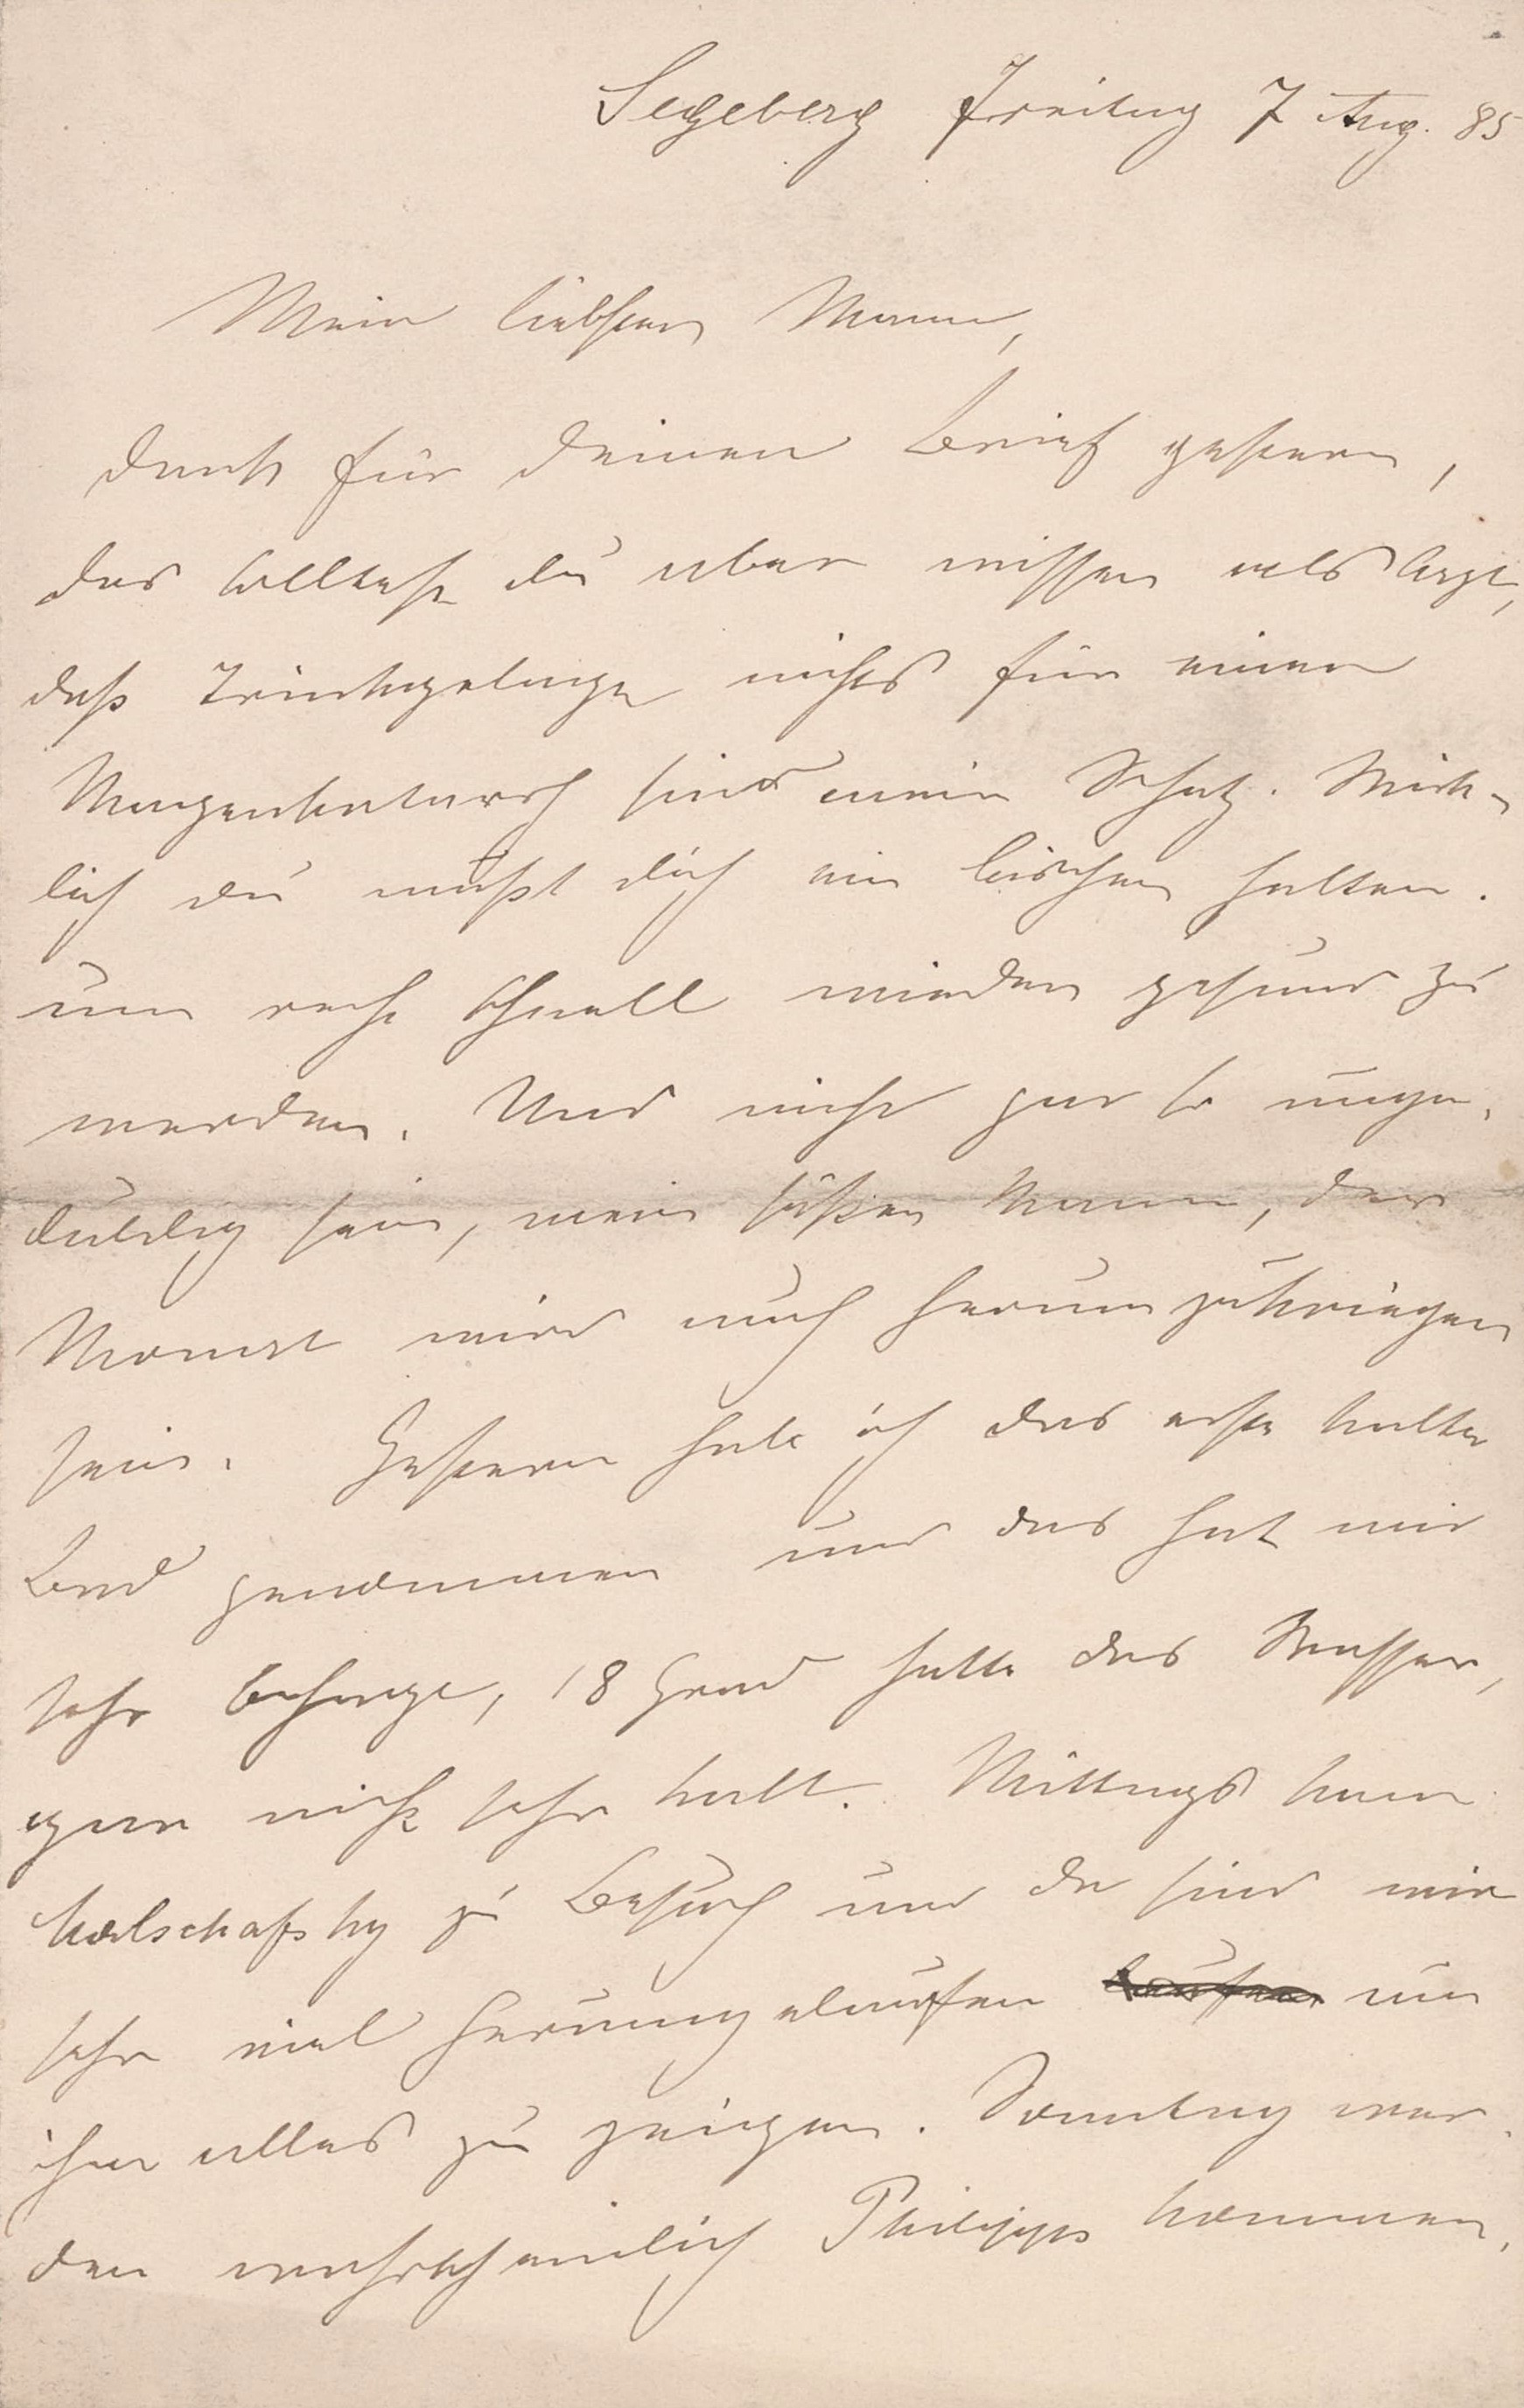 Segeberg Freitag 7 Aug. 85
Mein liebster Mann,
Dank für Deinen Brief gestern,
das solltest du aber wissen als Arzt,
daß Trinkgelage nichts für einen
Magenkatarrh sind mein Schatz. Wirk-
lich du mußt dich ein bischen halten.
um recht schnell wieder gesund zu
werden. Und nicht gar so unge-
duldig sein, mein süßer Mann, der
Monat wird auch herumzukriegen
sein. Gestern habe ich das erste kalte
Bad genommen und das hat mir
sehr behagt, 18 Grad hatte das Wasser,
gar nicht sehr kalt. Mittags kam
Kolschafsky zu Besuch und da sind wir
sehr viel herumgelaufen laufen um
ihm alles zu zeigen. Sonntag wer-
den wahrscheinlich Philipps kommen,